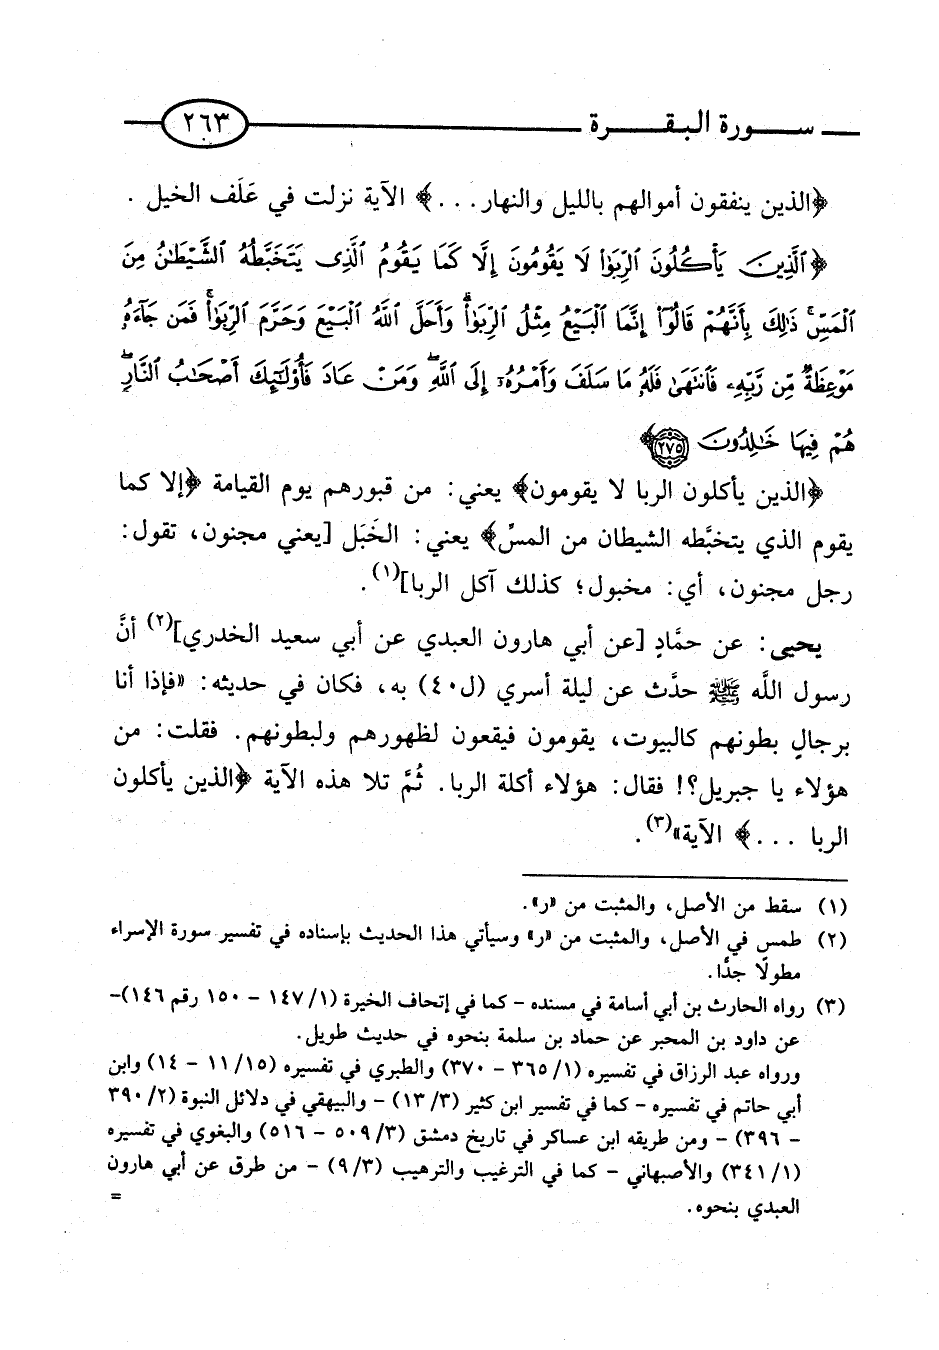 سورة البقرة ٢٦٣
﴿الذين ينفقون أموالهم بالليل والنهار . . .﴾ الآية نزلت في عَلَف الخيل .
﴿ٱلَّذِينَ يَأۡكُلُونَ ٱلرِّبَوٰاْ لَا يَقُومُونَ إِلَّا كَمَا يَقُومُ ٱلَّذِي يَتَخَبَّطُهُ ٱلشَّيۡطَٰنُ مِنَ
ٱلۡمَسِّۚ ذَٰلِكَ بِأَنَّهُمۡ قَالُوٓاْ إِنَّمَا ٱلۡبَيۡعُ مِثۡلُ ٱلرِّبَوٰاْۗ وَأَحَلَّ ٱللَّهُ ٱلۡبَيۡعَ وَحَرَّمَ ٱلرِّبَوٰاْۚ فَمَن جَآءَهُۥ
مَوۡعِظَةٞ مِّن رَّبِّهِۦ فَٱنتَهَىٰ فَلَهُۥ مَا سَلَفَ وَأَمۡرُهُۥٓ إِلَى ٱللَّهِۖ وَمَنۡ عَادَ فَأُوْلَٰٓئِكَ أَصۡحَٰبُ ٱلنَّارِۖ
هُمۡ فِيهَا خَٰلِدُونَ ٢٧٥﴾
﴿الذين يأكلون الربا لا يقومون﴾ يعني: من قبورهم يوم القيامة ﴿إلا كما
يقوم الذي يتخبَّطه الشيطان من المسِّ﴾ يعني: الخَبَل [يعني مجنون، تقول:
رجل مجنون، أي: مخبول؛ كذلك آكل الربا](١) .
يحيى: عن حمَّادٍ [عن أبي هارون العبدي عن أبي سعيد الخدري](٢) أنَّ
رسول اللَّه ﷺ حدَّث عن ليلة أسري (ل٤٠) به، فكان في حديثه: «فإذا أنا
برجالٍ بطونهم كالبيوت، يقومون فيقعون لظهورهم ولبطونهم. فقلت: من
هؤلاء يا جبريل؟! فقال: هؤلاء أكلة الربا. ثُمَّ تلا هذه الآية ﴿الذين يأكلون
الربا . . .﴾ الآية»(٣) .
(١) سقط من الأصل، والمثبت من «ر».
(٢) طمس في الأصل، والمثبت من «ر» وسيأتي هذا الحديث بإسناده في تفسير سورة الإسراء
مطولًا جدًّا.
(٣) رواه الحارث بن أبي أسامة في مسنده - كما في إتحاف الخيرة (١/ ١٤٧ - ١٥٠ رقم ١٤٦)-
عن داود بن المحبر عن حماد بن سلمة بنحوه في حديث طويل.
ورواه عبد الرزاق في تفسيره (١/ ٣٦٥ - ٣٧٠) والطبري في تفسيره (١٥/ ١١ - ١٤) وابن
أبي حاتم في تفسيره - كما في تفسير ابن كثير (٣/ ١٣) - والبيهقي في دلائل النبوة (٢/ ٣٩٠
- ٣٩٦) - ومن طريقه ابن عساكر في تاريخ دمشق (٣/ ٥٠٩ - ٥١٦) والبغوي في تفسيره
(١/ ٣٤١) والأصبهاني - كما في الترغيب والترهيب (٣/ ٩) - من طرق عن أبي هارون
العبدي بنحوه. =